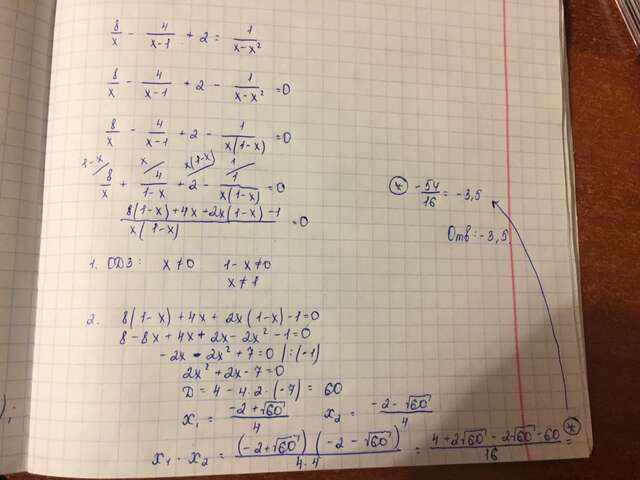 8/x - 4/(x-1) + 2 = 1/(x-x²)
8/x - 4/(x-1) + 2 - 1/(x-x²) = 0
8/x - 4/(x-1) + 2 - 1/(x(1-x)) = 0
1-x/ x/ x(1-x)/ 1/
8/x + 4/(1-x) + 2 - 1/(x(1-x)) = 0
(8(1-x)+4x+2x(1-x)-1)/(x(1-x)) = 0
1. ОДЗ: x≠0 1-x≠0
x≠1
2. 8(1-x)+4x+2x(1-x)-1=0
8-8x+4x+2x-2x²-1=0
-2x-2x²+7=0 |:(-1)
2x²+2x-7=0
D=4-4·2·(-7)=60
x₁=(-2+√60)/4 x₂=(-2-√60)/4
x₁·x₂=((-2+√60)(-2-√60))/(4·4)=(4+2√60-2√60-60)/16= (*)
(*) -54/16=-3,5
Отв:-3,5